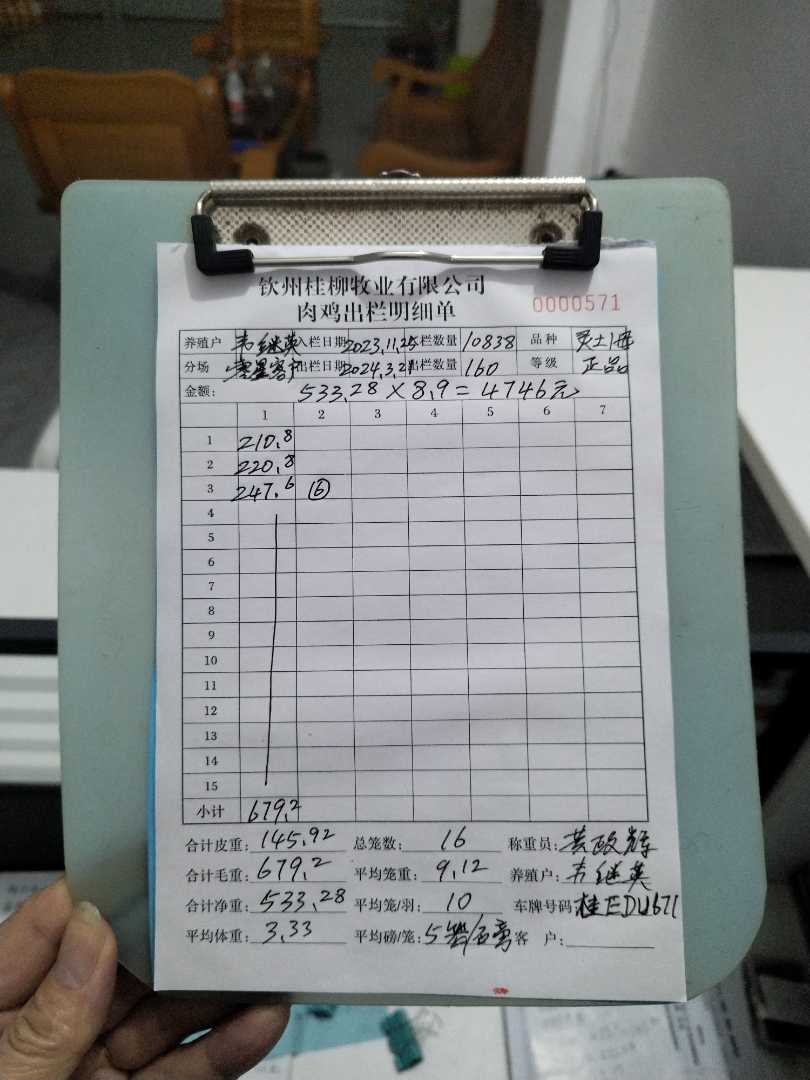 钦州桂柳牧业有限公司
肉鸡出栏明细单 0000571
养殖户 韦继英 入栏日期 2023.11.25 入栏数量 10838 品种 灵土1号
分场 出栏日期 2024.3.21 出栏数量 160 等级 正品
金额: 533.28×8.9=4746元
1 2 3 4 5 6 7
1 210.8
2 220.8
3 247.6 ⑥
4
5
6
7
8
9
10
11
12
13
14
15
小计 679.2
合计皮重: 145.92 总笼数: 16 称重员: 黄政辉
合计毛重: 679.2 平均笼重: 9.12 养殖户: 韦继英
合计净重: 533.28 平均笼/羽: 10 车牌号码 桂EDU671
平均体重: 3.33 平均磅/笼: 5 客 户: